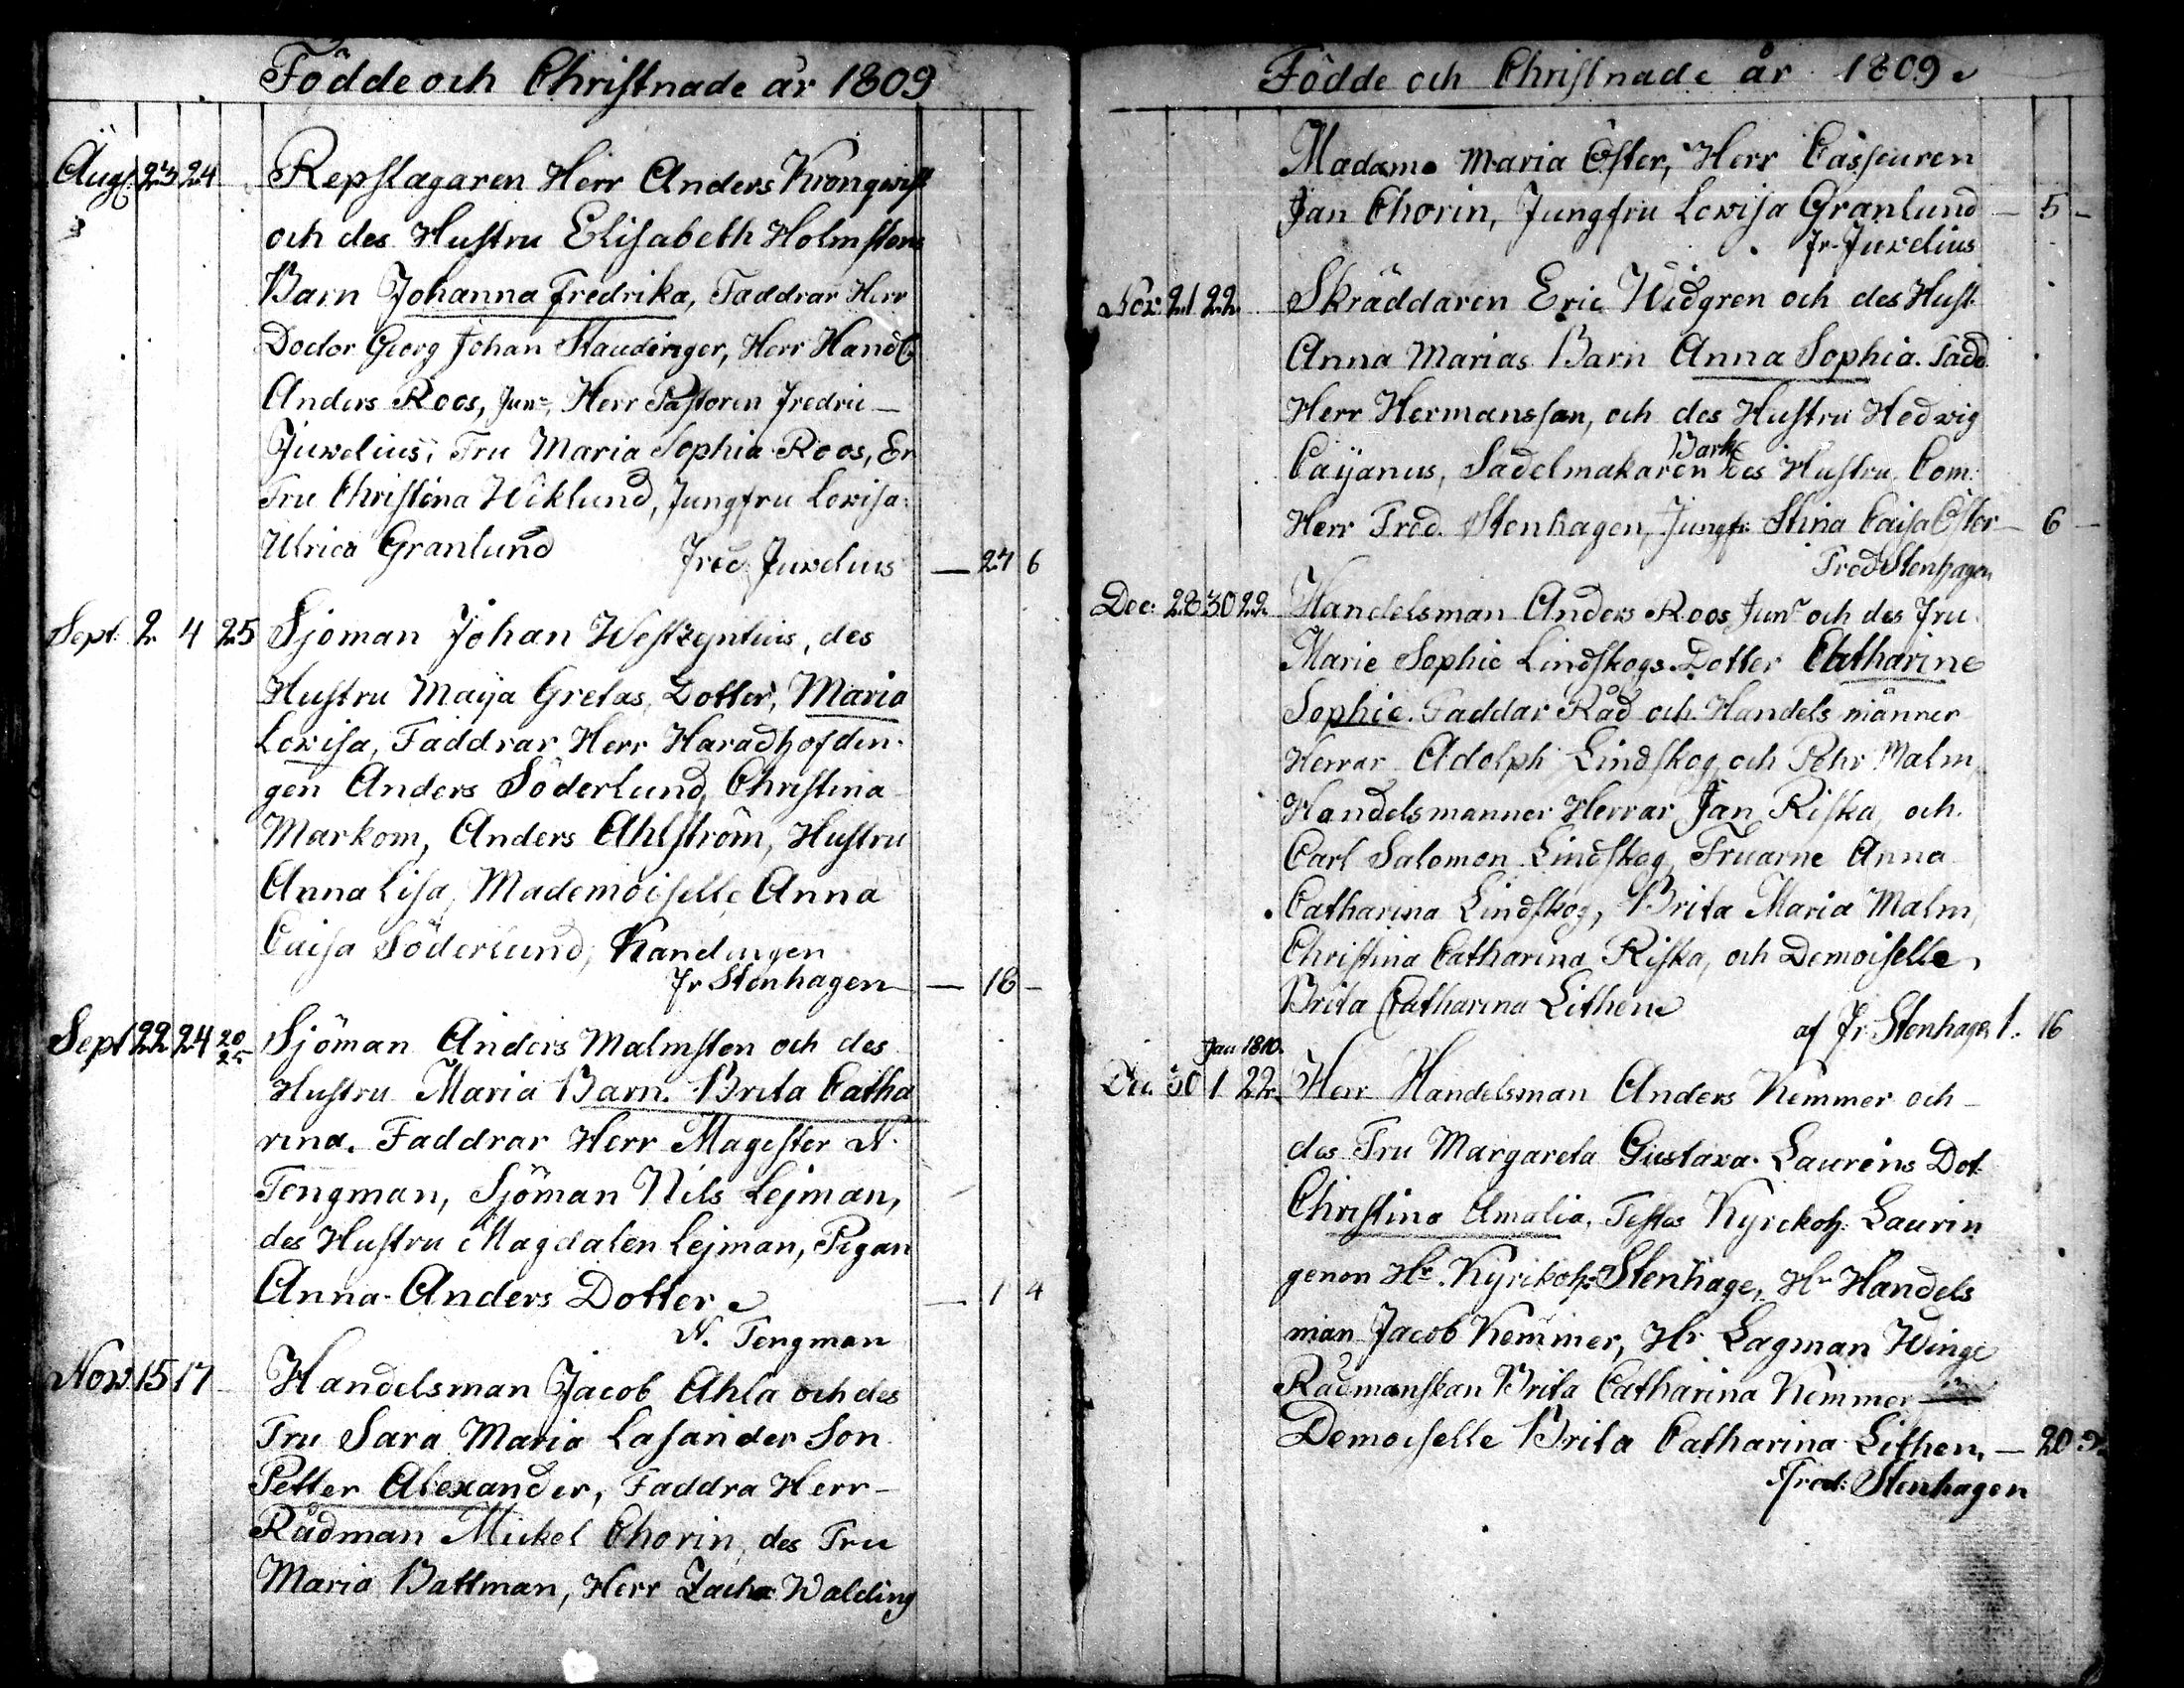 Födde och Christnade år 1809
Augs: 23 24 Repslagaren Herr Anders Kronqwist
och des Hustru Elisabeth Holmstens
Barn Johanna Fredrika, Faddrar Herr
Doctor Georg Johan Staudinger, Herr Handl:
Anders Roos, Junr, Herr Pastoren Fredric
Juvelius, Fru Maria Sophia Roos, En
Fru Christina Wiklund, Jungfru Lovisa
Ulrica Granlund
Fred: Juvelius — 24 6
Sept: 2 4 25 Sjöman Johan Westzynthius, des
Hustru Maija Gretas, Dotter, Maria
Lovisa, Faddrar Herr Haradhofdin-
gen Anders Söderlund, Christina
Markom, Anders Ahlström, Hustru
Anna Lisa, Mademoiselle Anna
Caisa Söderlund,
Fr Stenhagen — 18 —
Sept 22 24 20 25 Sjöman Anders Malmsten och des
Hustru Maria Barn. Brita Catha
rina. Faddrar Herr Magester N.
Tengman, Sjöman Nils Lejman,
des Hustru Magdalen Lejman, Pigan
Anna Anders Dotter — 1 4
N. Tengman
Nov. 15 17 Handelsman Jacob Ahla och des
Fru Sara Maria Lasander Son
Petter Alexander, Faddra Herr
Rådman Mickel Chorin, des Fru
Maria Battman, Herr Zachr Walding
Födde och Christnade år 1809
Madame Maria Öster, Herr Casseuren
Jan Chorin, Jungfru Lovisa Granlund — 5 —
Fr. Juvelius
Nov. 21 22 Skräddaren Eric Widgren och des Hust.
Anna Marias Barn Anna Sophia. Fadd.
Herr Hermansson, och des Hustru Hedvig
Bark
Caijanus, Sadelmakaren des Hustru, Com:
Herr Fred. Stenhagen, Jungfr: Stina Caisa Öster — 6 —
Fred Stenhagen
Dec: 28 30 22 Handelsman Anders Roos Junr och des Fru
Marie Sophie Lindskogs Dotter Catharine
Sophie. Faddar Råd och Handels männer
Herrar Adolph Lindskog och Pehr Malm,
Handelsmanner Herrar Jan Riska, och
Carl Salomon Lindskog, Fruarne Anna
Catharina Lindskog, Brita Maria Malm,
Christina Catharina Riska, och Demoiselle
Brita Catharina Lithen
af Fr Stenhagen 1. 16
Jan 1810.
Dec. 30 1 22 Herr Handelsman Anders Kemmer och
des Fru Margareta Gustava Laurens Dot.
Christina Amalia, Testes Kyrckoh: Laurin
genom Hr. Kyrikoh: Stenhage, Hr Handels
man Jacob Kemmer, Hr Lagman Winge
Rådmanskan Brita Catharina Kemmer
Demoiselle Brita Catharina Lithen, — 20 2
Fred: Stenhagen